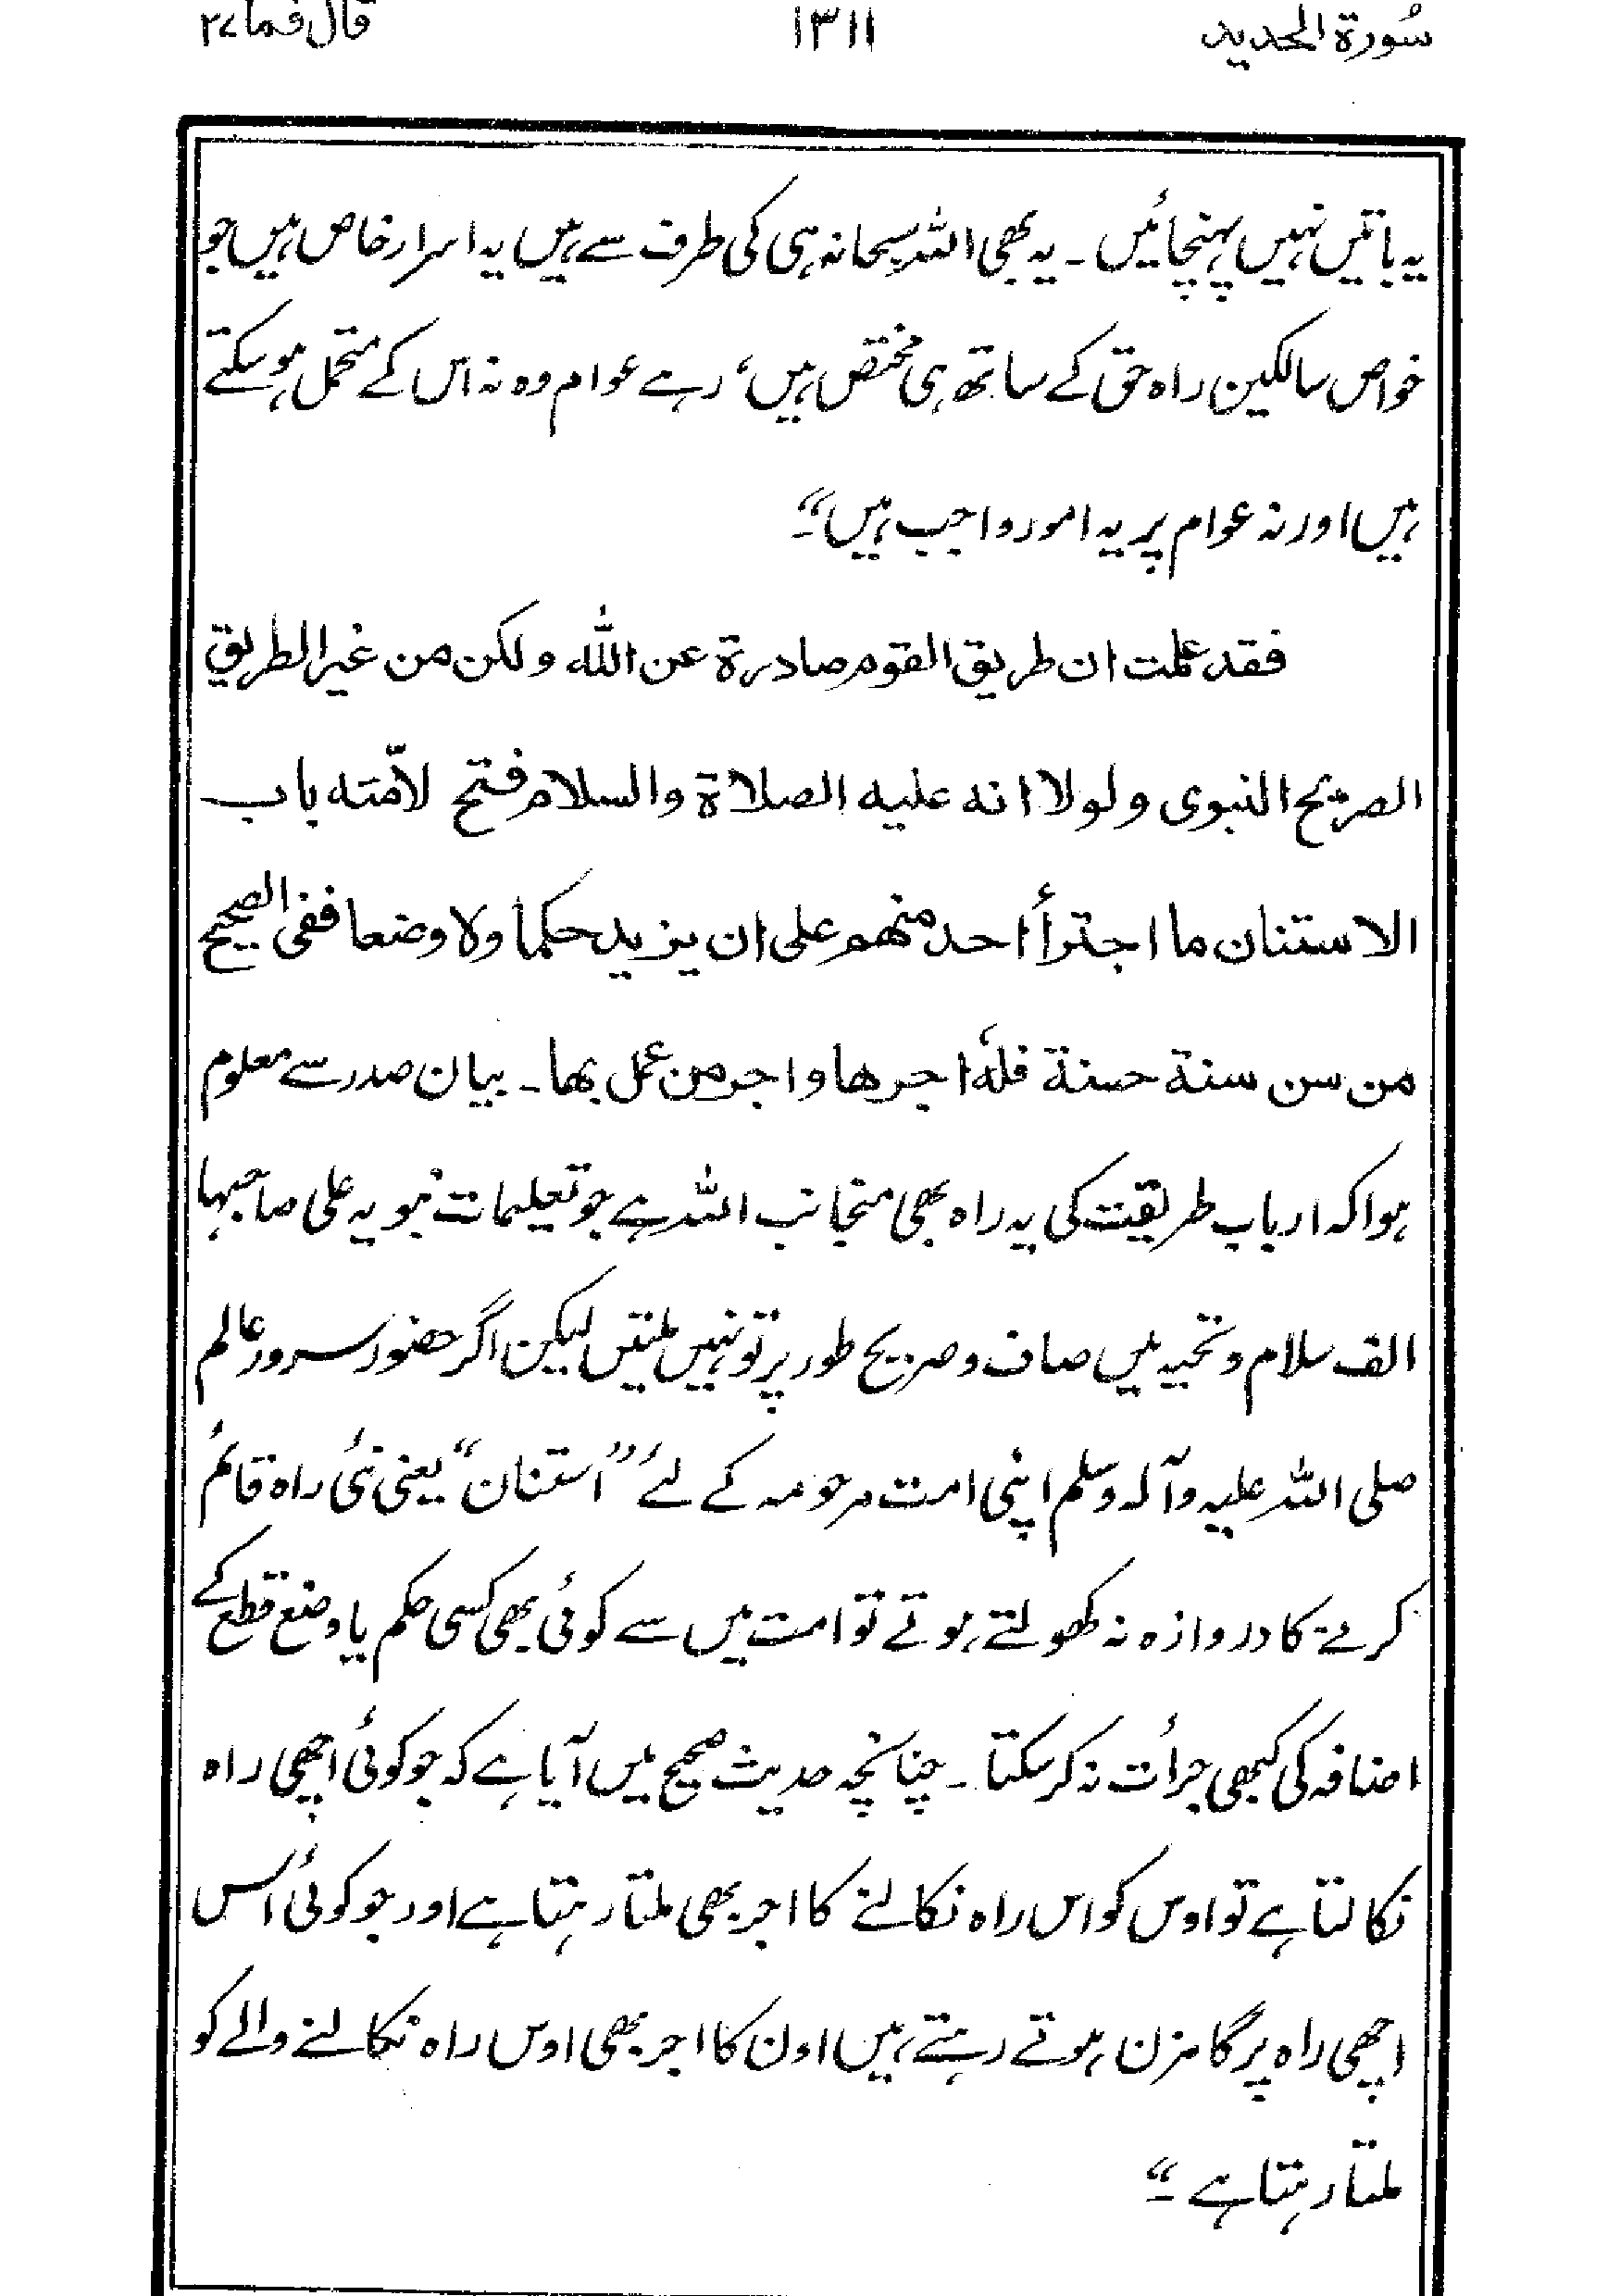 سُورة الحديد ۱۳۱۱ قال فما ۲۷
یہ باتیں نہیں پہنچائیں۔ یہ بھی اللہ سبحانہ ہی کی طرف سے ہیں یہ اسرار خاص ہیں جو
خواص سالکین راہ حق کے ساتھ ہی مختص ہیں، رہے عوام وہ نہ اس کے متحمل ہو سکتے
ہیں اور نہ عوام پر یہ امور واجب ہیں“۔
فقد علمت ان طريق القوم صادرة عن الله ولكن من غير الطريق
الصريح النبوى ولولا انه عليه الصلاة والسلام فتح لامّته باب
الاستنان ما اجترأ احد منهم على ان يزيد حكما ولا وضعا ففى الصحيح
من سن سنة حسنة فلهٗ اجرها واجر من عمل بها۔ بیان صدر سے معلوم
ہوا کہ ارباب طریقت کی یہ راہ بھی منجانب اللہ ہے جو تعلیمات نبویہ علی صاحبہا
الف سلام و تحیہ میں صاف و صریح طور پر تو نہیں ملتیں لیکن اگر حضور سرور عالم
صلی اللہ علیہ وآلہ وسلم اپنی امت مرحومہ کے لئے ”استنان“ یعنی نئی راہ قائم
کرنے کا دروازہ نہ کھولتے ہوتے تو امت میں سے کوئی بھی کسی حکم یا وضع قطع کے
اضافہ کی کبھی جرأت نہ کر سکتا۔ چنانچہ حدیث صحیح میں آیا ہے کہ جو کوئی اچھی راہ
نکالتا ہے تو اوس کو اس راہ نکالنے کا اجر بھی ملتا رہتا ہے اور جو کوئی اُس
اچھی راہ پر گامزن ہوتے رہتے ہیں اون کا اجر بھی اوس راہ نکالنے والے کو
ملتا رہتا ہے“۔